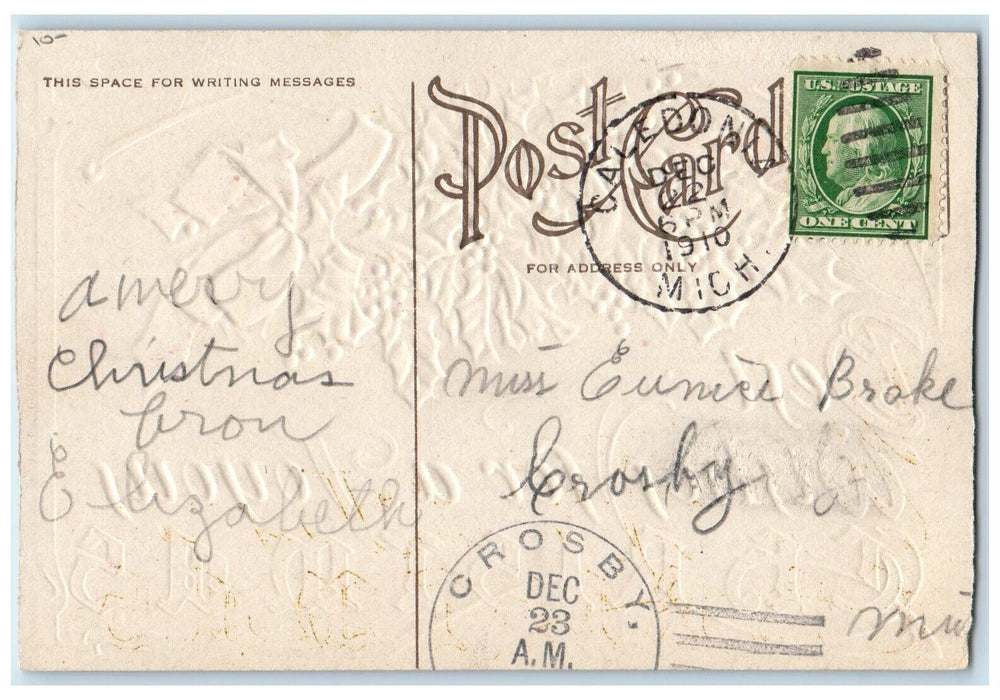 10-
THIS SPACE FOR WRITING MESSAGES
Post Card
FOR ADDRESS ONLY
U.S. POSTAGE
ONE CENT
CALEDONIA
DEC
22
6 PM
1910
MICH.
a merry
Christmas
from
Elizabeth
Miss Eunice Brake
Crosby
CROSBY,
DEC
23
A.M.